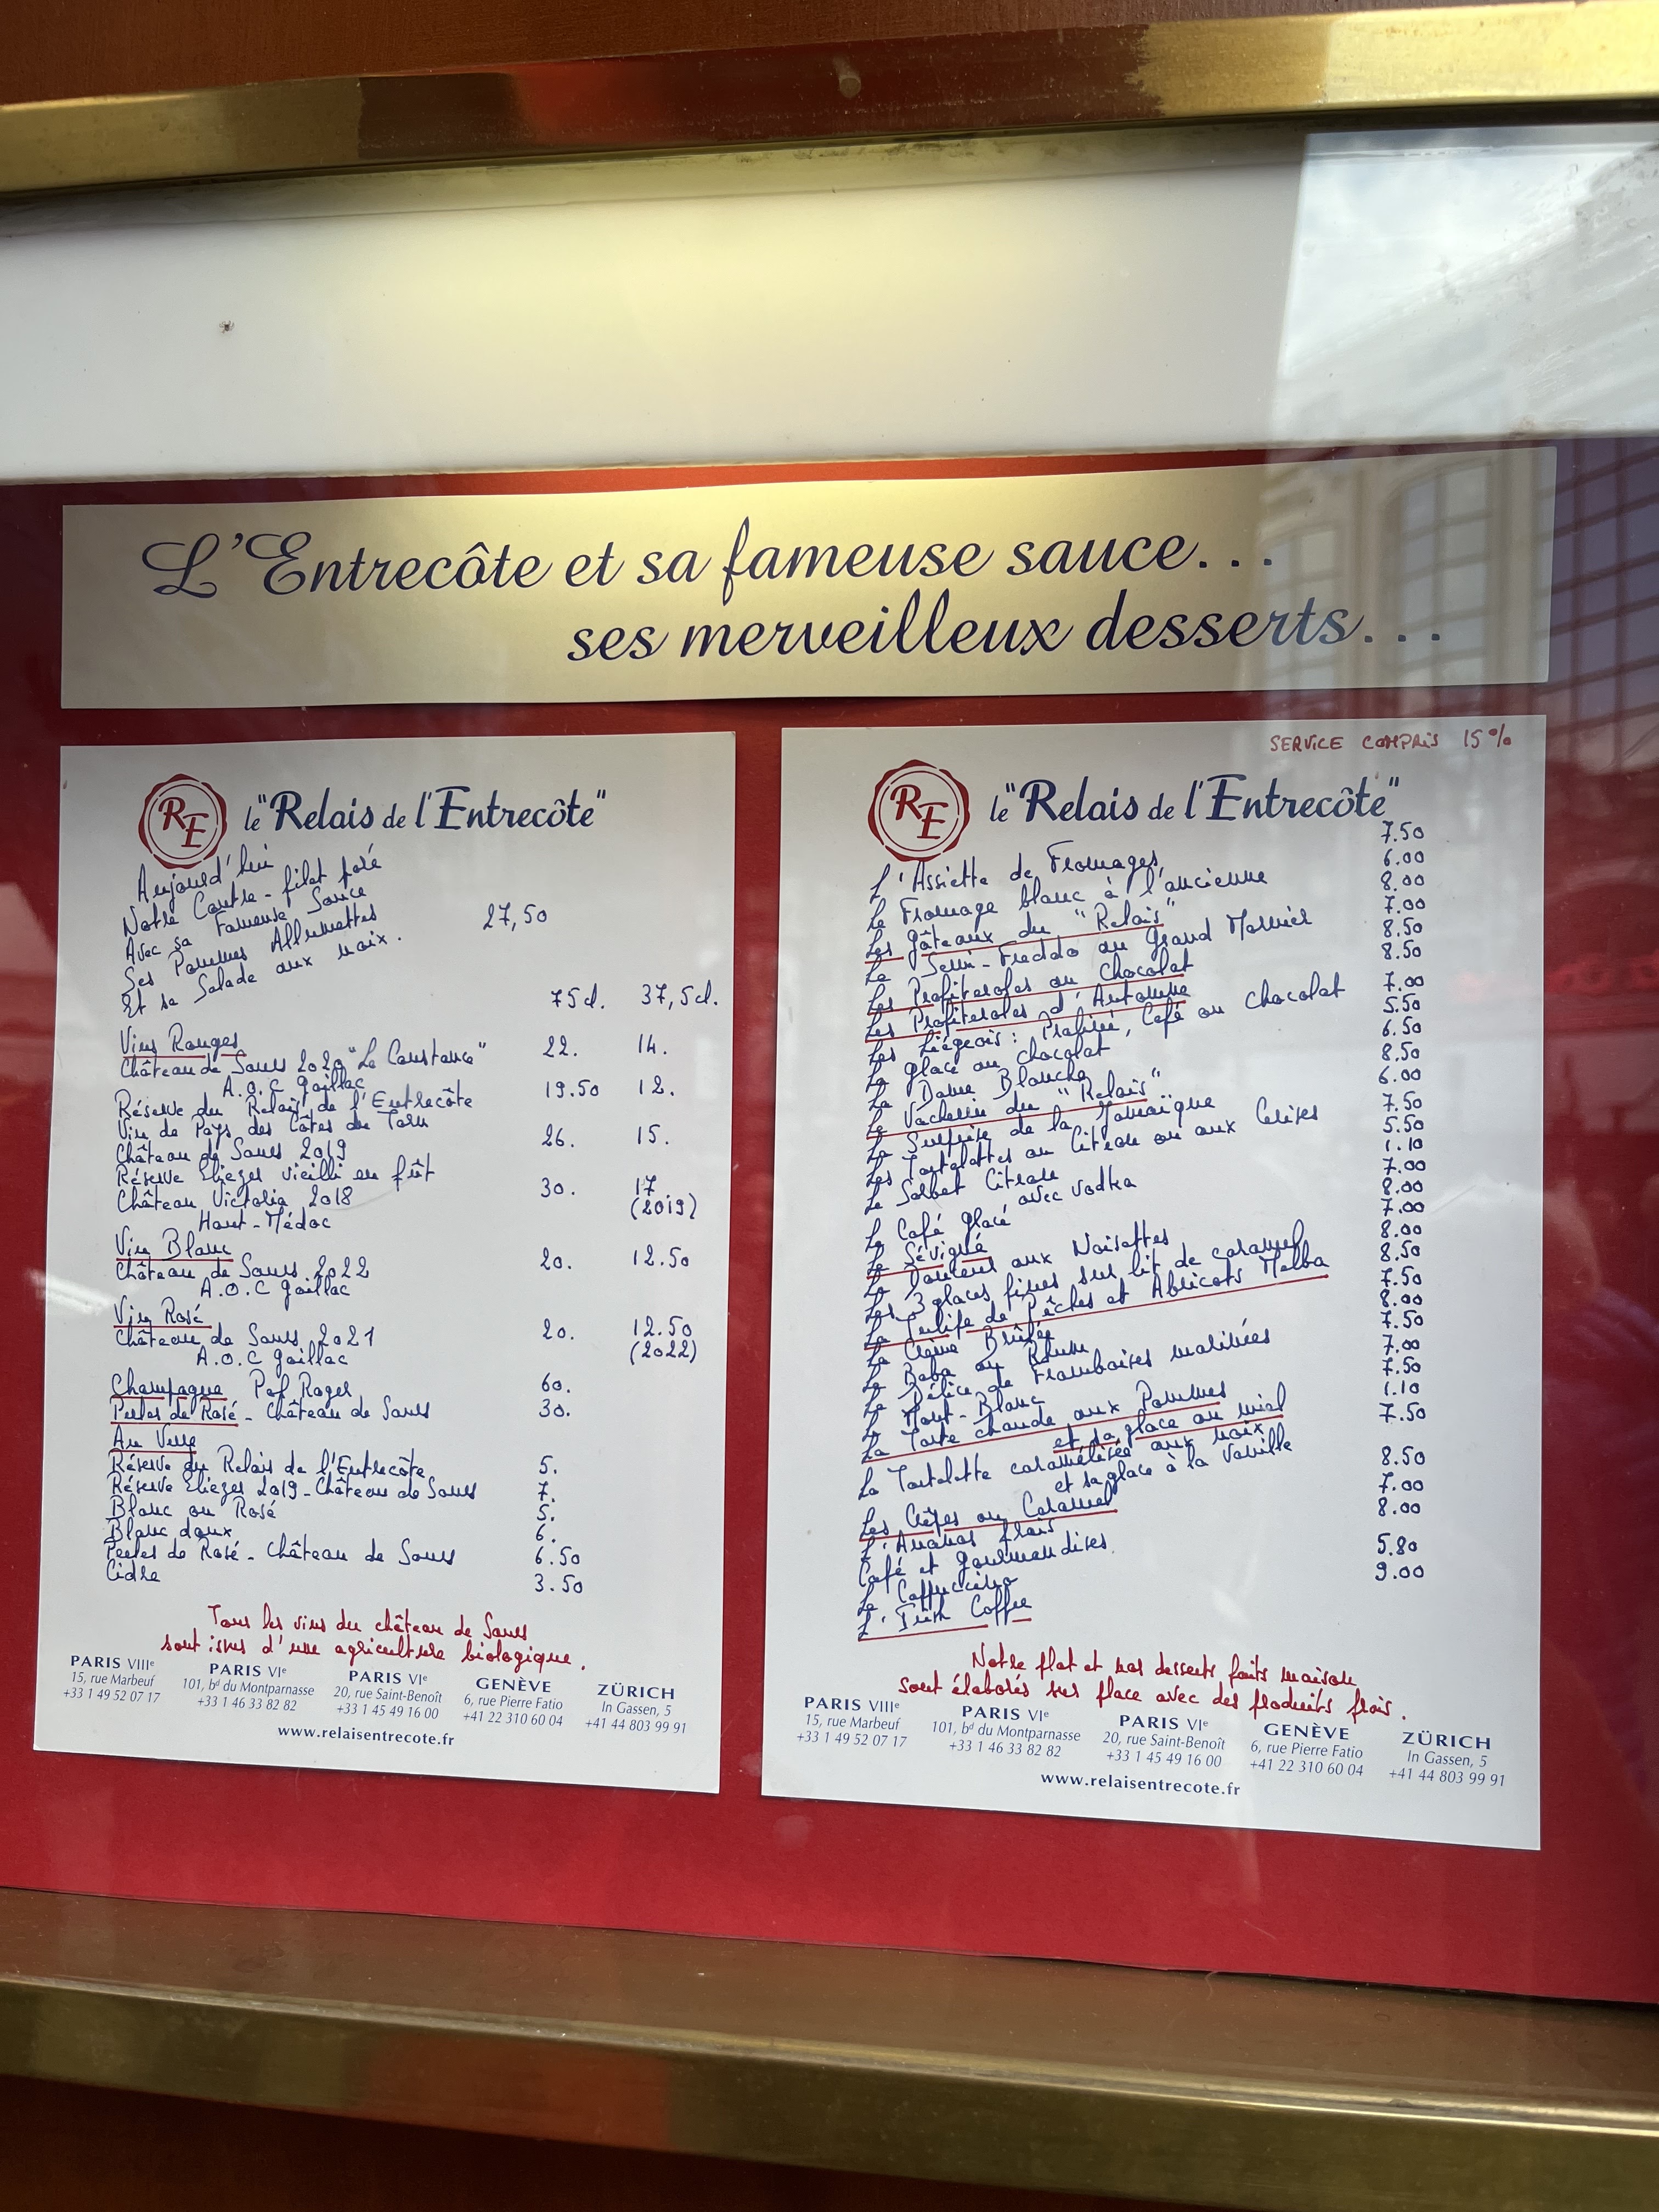 L'Entrecôte et sa fameuse sauce...
ses merveilleux desserts...
RE le "Relais de l'Entrecôte"
Aujourd'hui
Notre Contre-filet paré
Avec sa Fameuse Sauce
Ses Pommes Allumettes
Et sa Salade aux noix.
27,50
75cl. 37,5cl.
Vins Rouges
Château de Saurs 2020 "Le Constance" 22. 14.
A.O.C Gaillac
Réserve du Relais de l'Entrecôte 19.50 12.
Vin de Pays des Côtes du Tarn
Château de Saurs 2019 26. 15.
Réserve Eliezer vieilli en fût
Château Victoria 2018 30. 17
Haut-Médoc (2019)
Vin Blanc
Château de Saurs 2022 20. 12.50
A.O.C Gaillac
Vin Rosé
Château de Saurs 2021 20. 12.50
A.O.C Gaillac (2022)
Champagne Pol Roger 60.
Perles de Rosé - Château de Saurs 30.
Au Verre
Réserve du Relais de l'Entrecôte 5.
Réserve Eliezer 2019 - Château de Saurs 7.
Blanc ou Rosé 5.
Blanc doux 6.
Perles de Rosé - Château de Saurs 6.50
Cidre 3.50
Tous les vins du château de Saurs
sont issus d'une agriculture biologique.
PARIS VIIIe PARIS VIe PARIS VIe GENÈVE ZÜRICH
15, rue Marbeuf 101, bd du Montparnasse 20, rue Saint-Benoît 6, rue Pierre Fatio In Gassen, 5
+33 1 49 52 07 17 +33 1 46 33 82 82 +33 1 45 49 16 00 +41 22 310 60 04 +41 44 803 99 91
www.relaisentrecote.fr
SERVICE COMPRIS 15%
RE le "Relais de l'Entrecôte"
L'Assiette de Fromages 7.50
Le Fromage blanc à l'ancienne 6.00
Les Gâteaux du "Relais" 8.00
Le Semi-Freddo au Grand Marnier 7.00
Les Profiteroles au Chocolat 8.50
Les Profiteroles d'Automne 8.50
Les Liégeois : Praliné, Café ou Chocolat 7.00
La glace au chocolat 5.50
La Dame Blanche 6.50
Le Vacherin du "Relais" 8.50
La Surprise de la Jamaïque 6.00
Les Tartelettes au Citron ou aux Cerises 7.50
Le Sorbet Citron 5.50
avec vodka 1.10
Le Café Glacé 7.00
Le Sévigné 8.00
Le Dauteuil aux Noisettes 7.00
Les 3 glaces fines sur lit de caramel 8.00
La Tulipe de Pêches et Abricots Melba 8.50
La Crème Brûlée 7.50
Le Baba au Rhum 8.00
Le Délice de Framboises marinées 7.50
Le Mont-Blanc 7.00
La Tarte chaude aux Pommes 7.50
et sa glace au miel 1.10
La Tartelette caramélisée aux noix 7.50
et sa glace à la vanille
Les Crêpes au Caramel 8.50
L'Ananas frais 7.00
Café et gourmandises. 8.00
Le Cappuccino 5.80
L'Irish Coffee 9.00
Notre plat et nos desserts faits maison
sont élaborés sur place avec des produits frais.
PARIS VIIIe PARIS VIe PARIS VIe GENÈVE ZÜRICH
15, rue Marbeuf 101, bd du Montparnasse 20, rue Saint-Benoît 6, rue Pierre Fatio In Gassen, 5
+33 1 49 52 07 17 +33 1 46 33 82 82 +33 1 45 49 16 00 +41 22 310 60 04 +41 44 803 99 91
www.relaisentrecote.fr